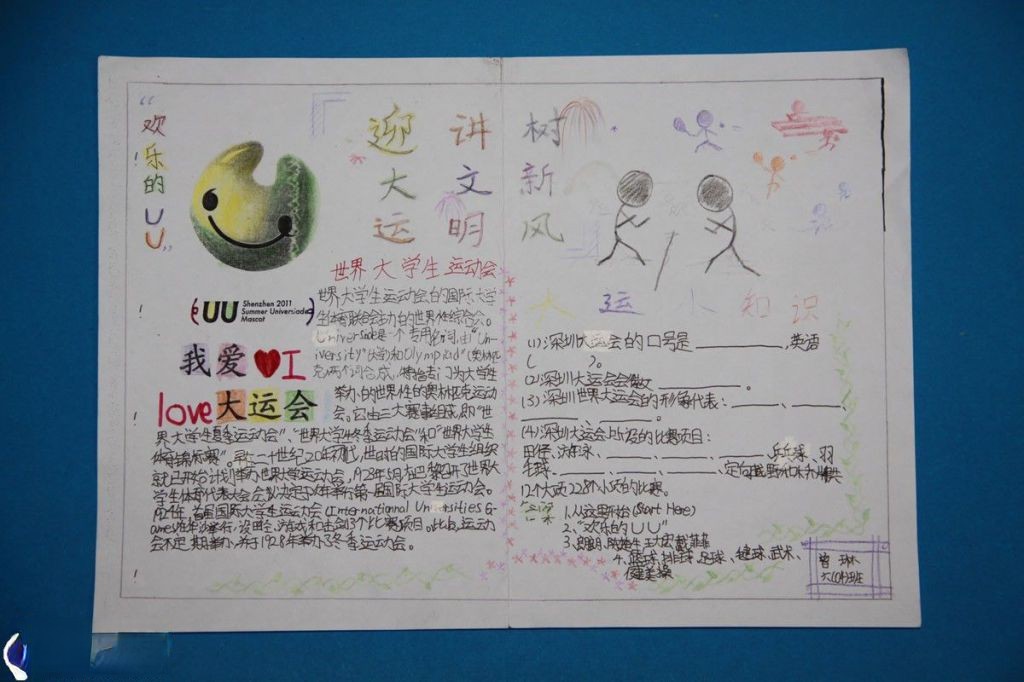 “欢乐的UU”
迎 讲 树
大 文 新
运 明 风
(UU Shenzhen 2011
Summer Universiade
Mascot)
我爱I
love大运会
世界大学生运动会
世界大学生运动会的国际大学
生体育联合会主办的世界性综合会。
Universiade是一个专用名词,由“Un-
iversity”(大学)和Olympiad”(奥林匹
克)两个词合成,
为大学生
举办的世界性的奥林匹克运动
会。它由三大赛事组成,即“世
界大学生夏季运动会”、“世界大学生冬季运动会”和“世界大学生
体育锦标赛”。二十世纪20年初代,
的国际大学生组织
就已开始计划举办世界大学运动会,1923年5月在巴黎召开世界大
学生体育代表大会会议决定
年举行第一届国际大学生运动会。
首届国际大学生运动会(International Universities G-
ames
举行,设田径、游泳和击剑3个比赛项目。此后,运动
会不定期举办,并于1928年举办了冬季运动会。
大 运 人 知 识
(1)深圳大运会的口号是________,英语
(        )。
(2)深圳大运会会徽________。
(3)深圳世界大运会的形象代表:____、____、
____、____。
(4)深圳大运会
的比赛项目:
田径、游泳、____、____、____、____、乒乓球、羽
毛球、____、____、____、____、定向越野
共
12个大项228个小项的比赛。
答案
1.从这里开始(Start Here)
2.“欢乐的UU”
3.
4.篮球、排球、足球、毽球、武术、
健美操
曾琳
六(4)班